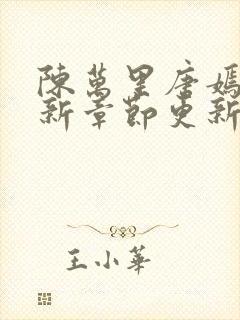 陳萬里唐嫣
新章節更新
王小華